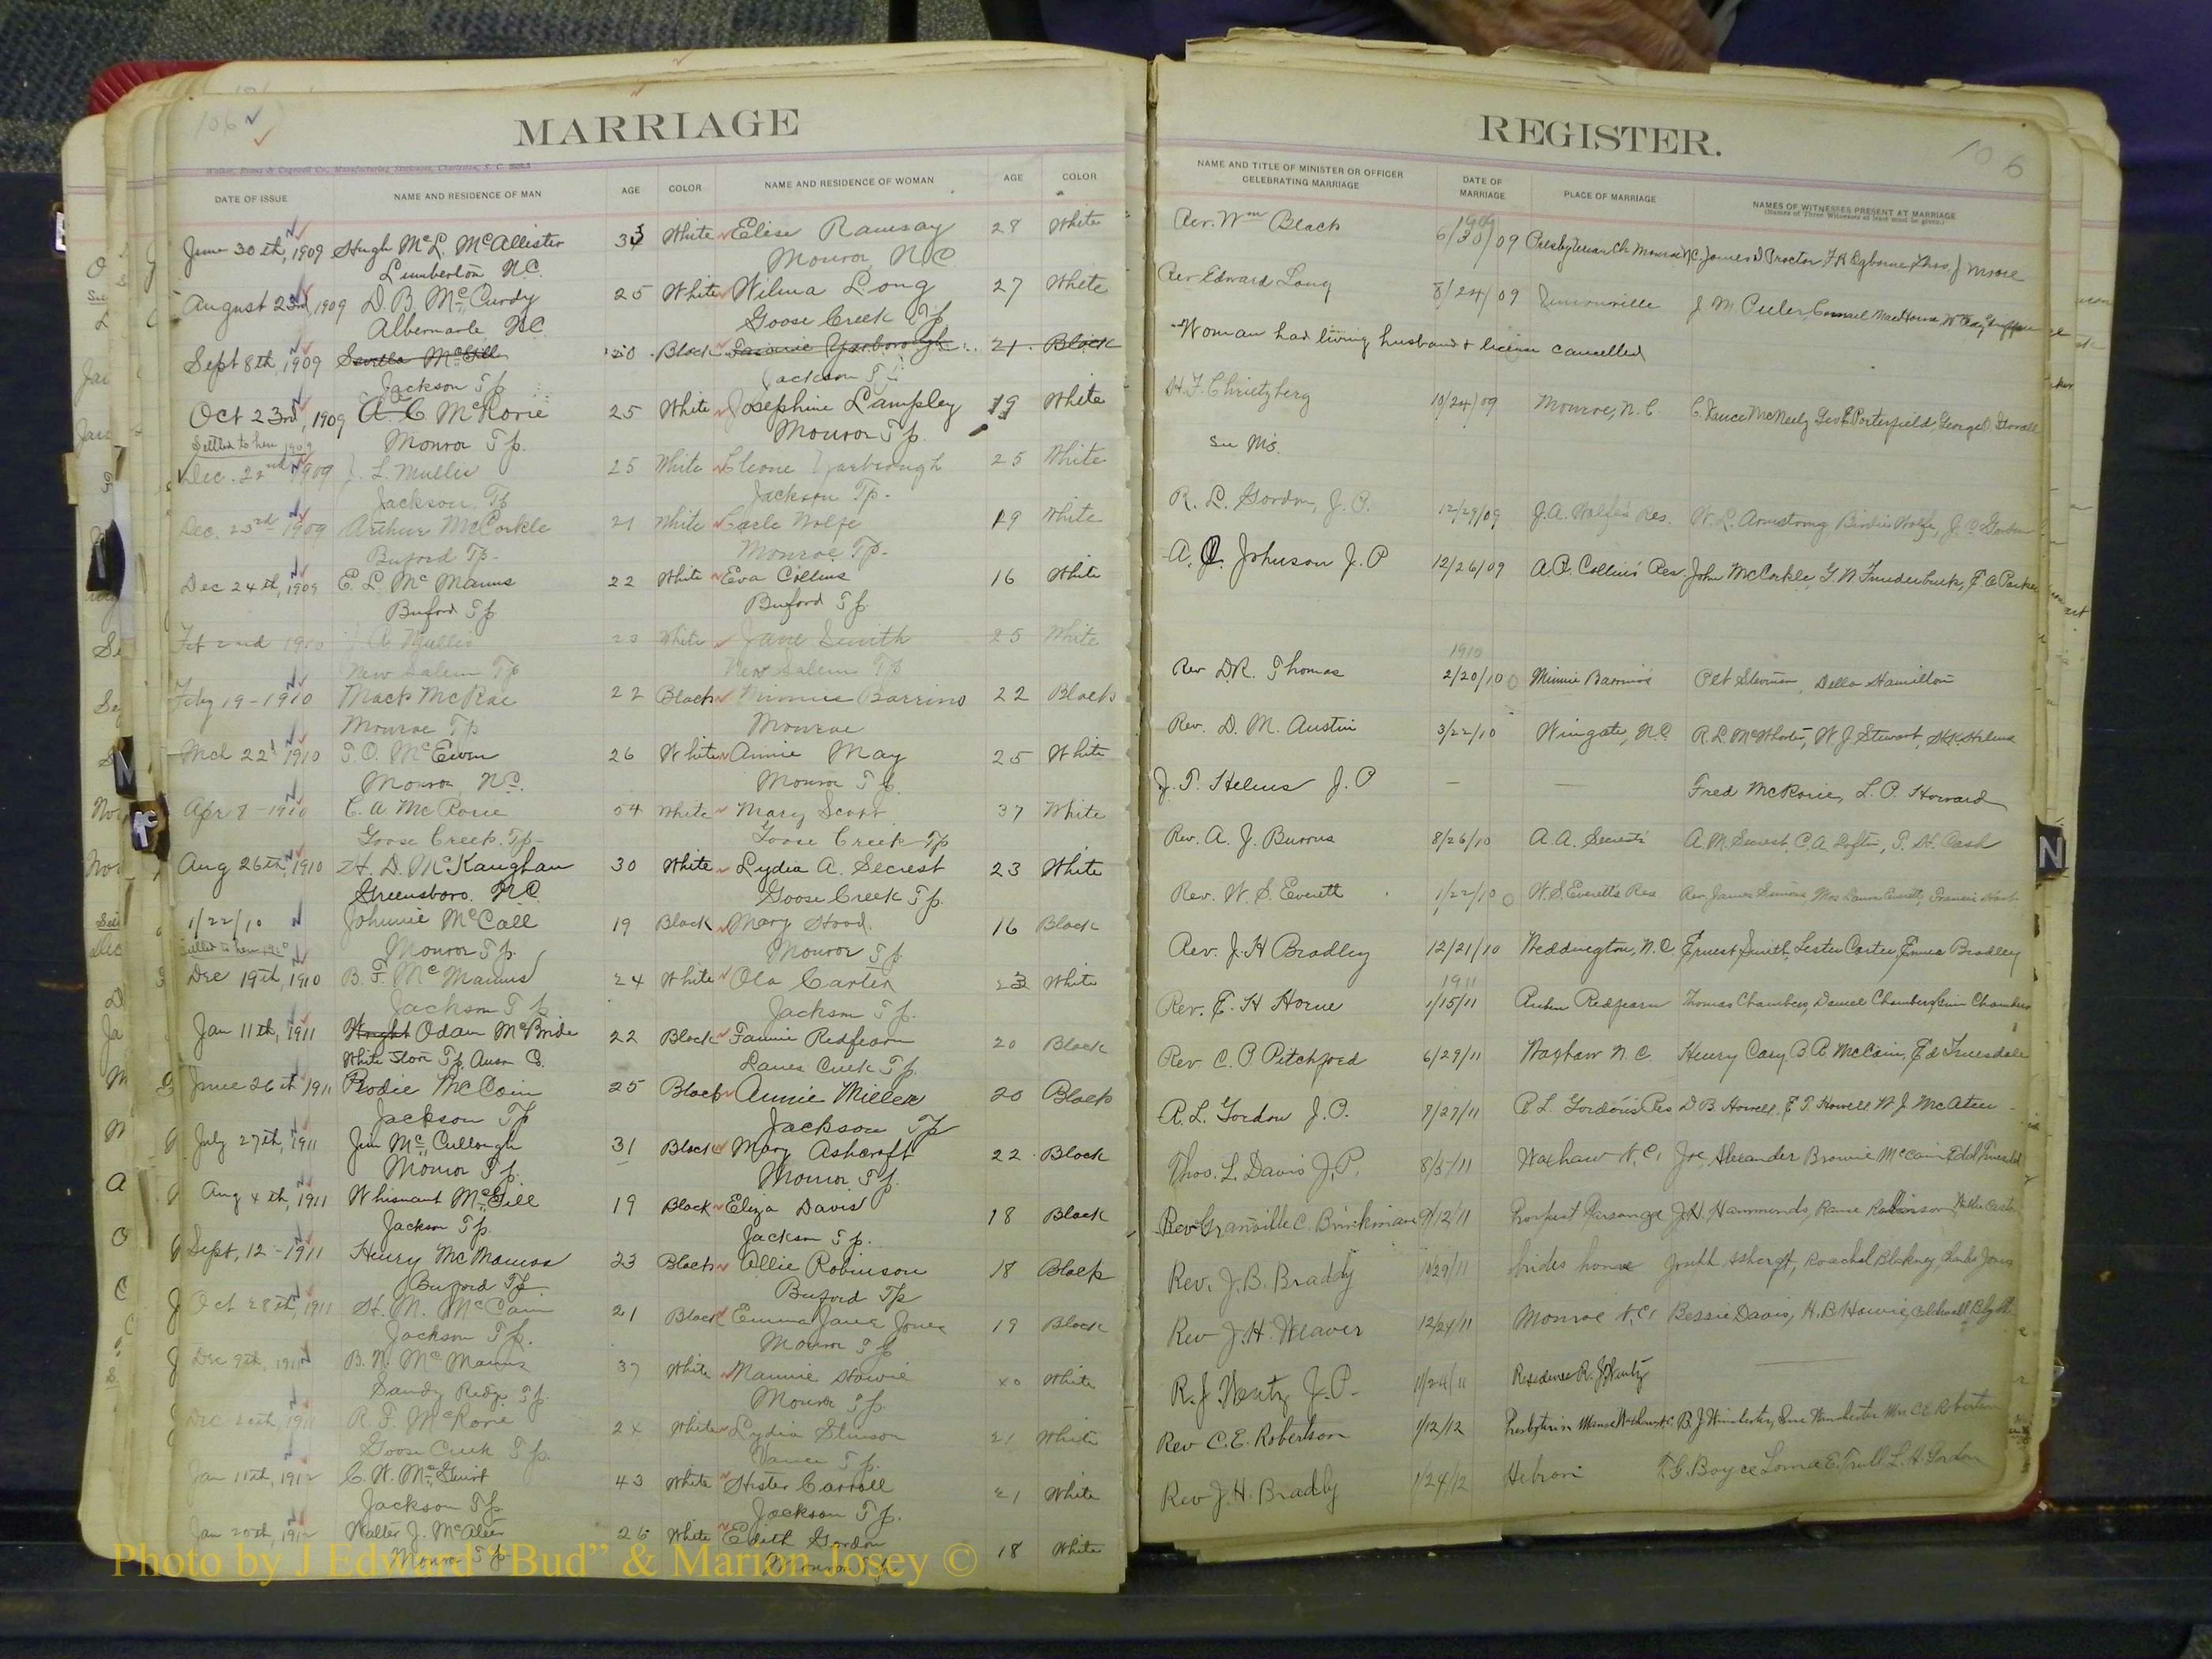 106
MARRIAGE
Walker, Evans & Cogswell Co., Manufacturing Stationers, Charleston, S. C.
DATE OF ISSUE NAME AND RESIDENCE OF MAN AGE COLOR NAME AND RESIDENCE OF WOMAN AGE COLOR
June 30th, 1909 Hugh McL. McAllister 33 White Elise Ramsay 28 White
Lumberton N.C. Monroe N.C.
August 23rd, 1909 D. B. McCurdy 25 White Wilma Long 27 White
Albemarle N.C. Goose Creek Tp
Sept 8th, 1909 McGill 20 Black Yarborough 21 Black
Jackson Tp Jackson Tp
Oct 23rd, 1909 A. C. McRorie 25 White Josephine Lampley 19 White
Settled to here 1909 Monroe Tp. Monroe Tp.
Dec. 22nd 1909 J. L. Mullis 25 White Cleone Yarbrough 25 White
Jackson Tp Jackson Tp.
Dec. 23rd 1909 Arthur McCorkle 21 White Carle Wolfe 19 White
Buford Tp. Monroe Tp.
Dec 24th, 1909 E. L. McManus 22 White Eva Collins 16 White
Buford Tp Buford Tp.
Feb 2nd 1910 J A Mullis 23 White Jane Smith 25 White
New Salem Tp New Salem Tp
Feby 19-1910 Mack McRae 22 Black Minnie Barrino 22 Black
Monroe Tp Monroe
Mch 22 1910 T. O. McEwen 26 White Annie May 25 White
Monroe, N.C. Monroe Tp.
Apr 8-1910 C. A McRorie 54 White Mary Scott 37 White
Goose Creek Tp- Goose Creek Tp
Aug 26th, 1910 H. D. McKaughan 30 White Lydia A. Secrest 23 White
Greensboro. N.C. Goose Creek Tp.
1/22/10 Johnnie McCall 19 Black Mary Hood 16 Black
Settled to here 1910 Monroe Tp. Monroe Tp
Dec 19th, 1910 B. F. McManus 24 White Ola Carter 23 White
Jackson Tp Jackson Tp.
Jan 11th, 1911 Wright Odam McBride 22 Black Fannie Redfearn 20 Black
White Store Tp. Anson Co. Lanes Creek Tp.
June 26th 1911 Rodie McCain 25 Black Annie Miller 20 Black
Jackson Tp Jackson Tp
July 27th, 1911 Jim McCullough 31 Black Mary Ashcraft 22 Black
Monroe Tp. Monroe Tp.
Aug 4th, 1911 Whisnant McGill 19 Black Eliza Davis 18 Black
Jackson Tp. Jackson Tp.
Sept, 12-1911 Henry McManus 23 Black Allie Robinson 18 Black
Buford Tp Buford Tp
Oct 28th, 1911 H. M. McCain 21 Black Emma Jane Jones 19 Black
Jackson Tp. Monroe Tp
Dec 9th, 1911 B. N. McManus 37 White Mamie Howie 20 White
Sandy Ridge Tp. Monroe Tp.
Dec 1911 R. F. McRorie 24 White Lydia Stinson 21 White
Goose Creek Tp. Vance Tp.
Jan 11th, 1912 C. W. McGuirt 43 White Hester Carroll 21 White
Jackson Tp Jackson Tp.
Jan 20th, 1912 Walter J. McAteer 26 White Edith Gordon 18 White
Monroe Tp Monroe Tp
REGISTER.
106
NAME AND TITLE OF MINISTER OR OFFICER CELEBRATING MARRIAGE DATE OF MARRIAGE PLACE OF MARRIAGE NAMES OF WITNESSES PRESENT AT MARRIAGE
(Names of Three Witnesses at least must be given.)
1909
Rev. Wm Black 6/30/09 Presbyterian Ch Monroe N.C. James D Proctor, Thos J Moore
Rev Edward Long 8/24/09 Unionville J. M. Peeler
Woman had living husband & license cancelled
H. F. Chrietzberg 10/24/09 Monroe, N.C. C. Vance McNeely Geo E Porterfield, George D.
See M's.
R. L. Gordon, J. P. 12/29/09 J. A. Wolfe's Res. W. L. Armstrong Birdie Wolfe
A. Q. Johnson J. P 12/26/09 A. P. Collins Res. John McCorkle, G. W Funderburk, F. A Parker
1910
Rev D.R. Thomas 2/20/10 Minnie Barrino's Della Hamilton
Rev. D. M. Austin 3/22/10 Wingate, N.C. R. L. McWhorter, W J Stewart, Helms
J. T. Helms J. P — — Fred McRorie, L. P. Howard
Rev. A. J. Burrus 8/26/10 A. A. Secrest's A. M. Secrest, C. A. Loftin, T. H. Cash
Rev. W. S. Everett 1/22/10 W. S. Everett's Res Rev. James Simons, Mrs Laura Everett, Francis
Rev. J. H Bradley 12/21/10 Weddington, N.C. Ernest Smith, Lester Carter, Emma Bradley
1911
Rev. E. H Horne 1/15/11 Redfearn Thomas Chambers, Daniel Chambers, Chambers
Rev C. P. Pitchford 6/29/11 Waxhaw N.C. Henry Cary, B. A. McCain, Ed Truesdale
R. L. Gordon J. P. 7/27/11 R L. Gordon's Res D. B. Howell, E. T. Howell W J. McAteer
Thos. L. Davis J. P. 8/5/11 Waxhaw N.C. Joe Alexander Brownie McCain Edd Truesdale
Rev Granville C. Brinkman 9/12/11 Prospect Parsonage J. H. Hammonds, Robinson
Rev. J. B. Braddy 10/29/11 brides home Ashcraft, Rachel Blakney, Jones
Rev J. H. Weaver 12/24/11 Monroe N.C. Bessie Davis, H. B Howie
R. J. Wentz J. P. Residence R. J Wentz
Rev C. E. Roberson 1/12/12 Presbyterian Manse Waxhaw N.C. B. J Winchester, Winchester Mrs C E Roberson
Rev J. H. Bradly 1/24/12 Hebron T. G. Boyce E. Trull L. H. Gordon
Photo by J Edward “Bud” & Marion Josey ©